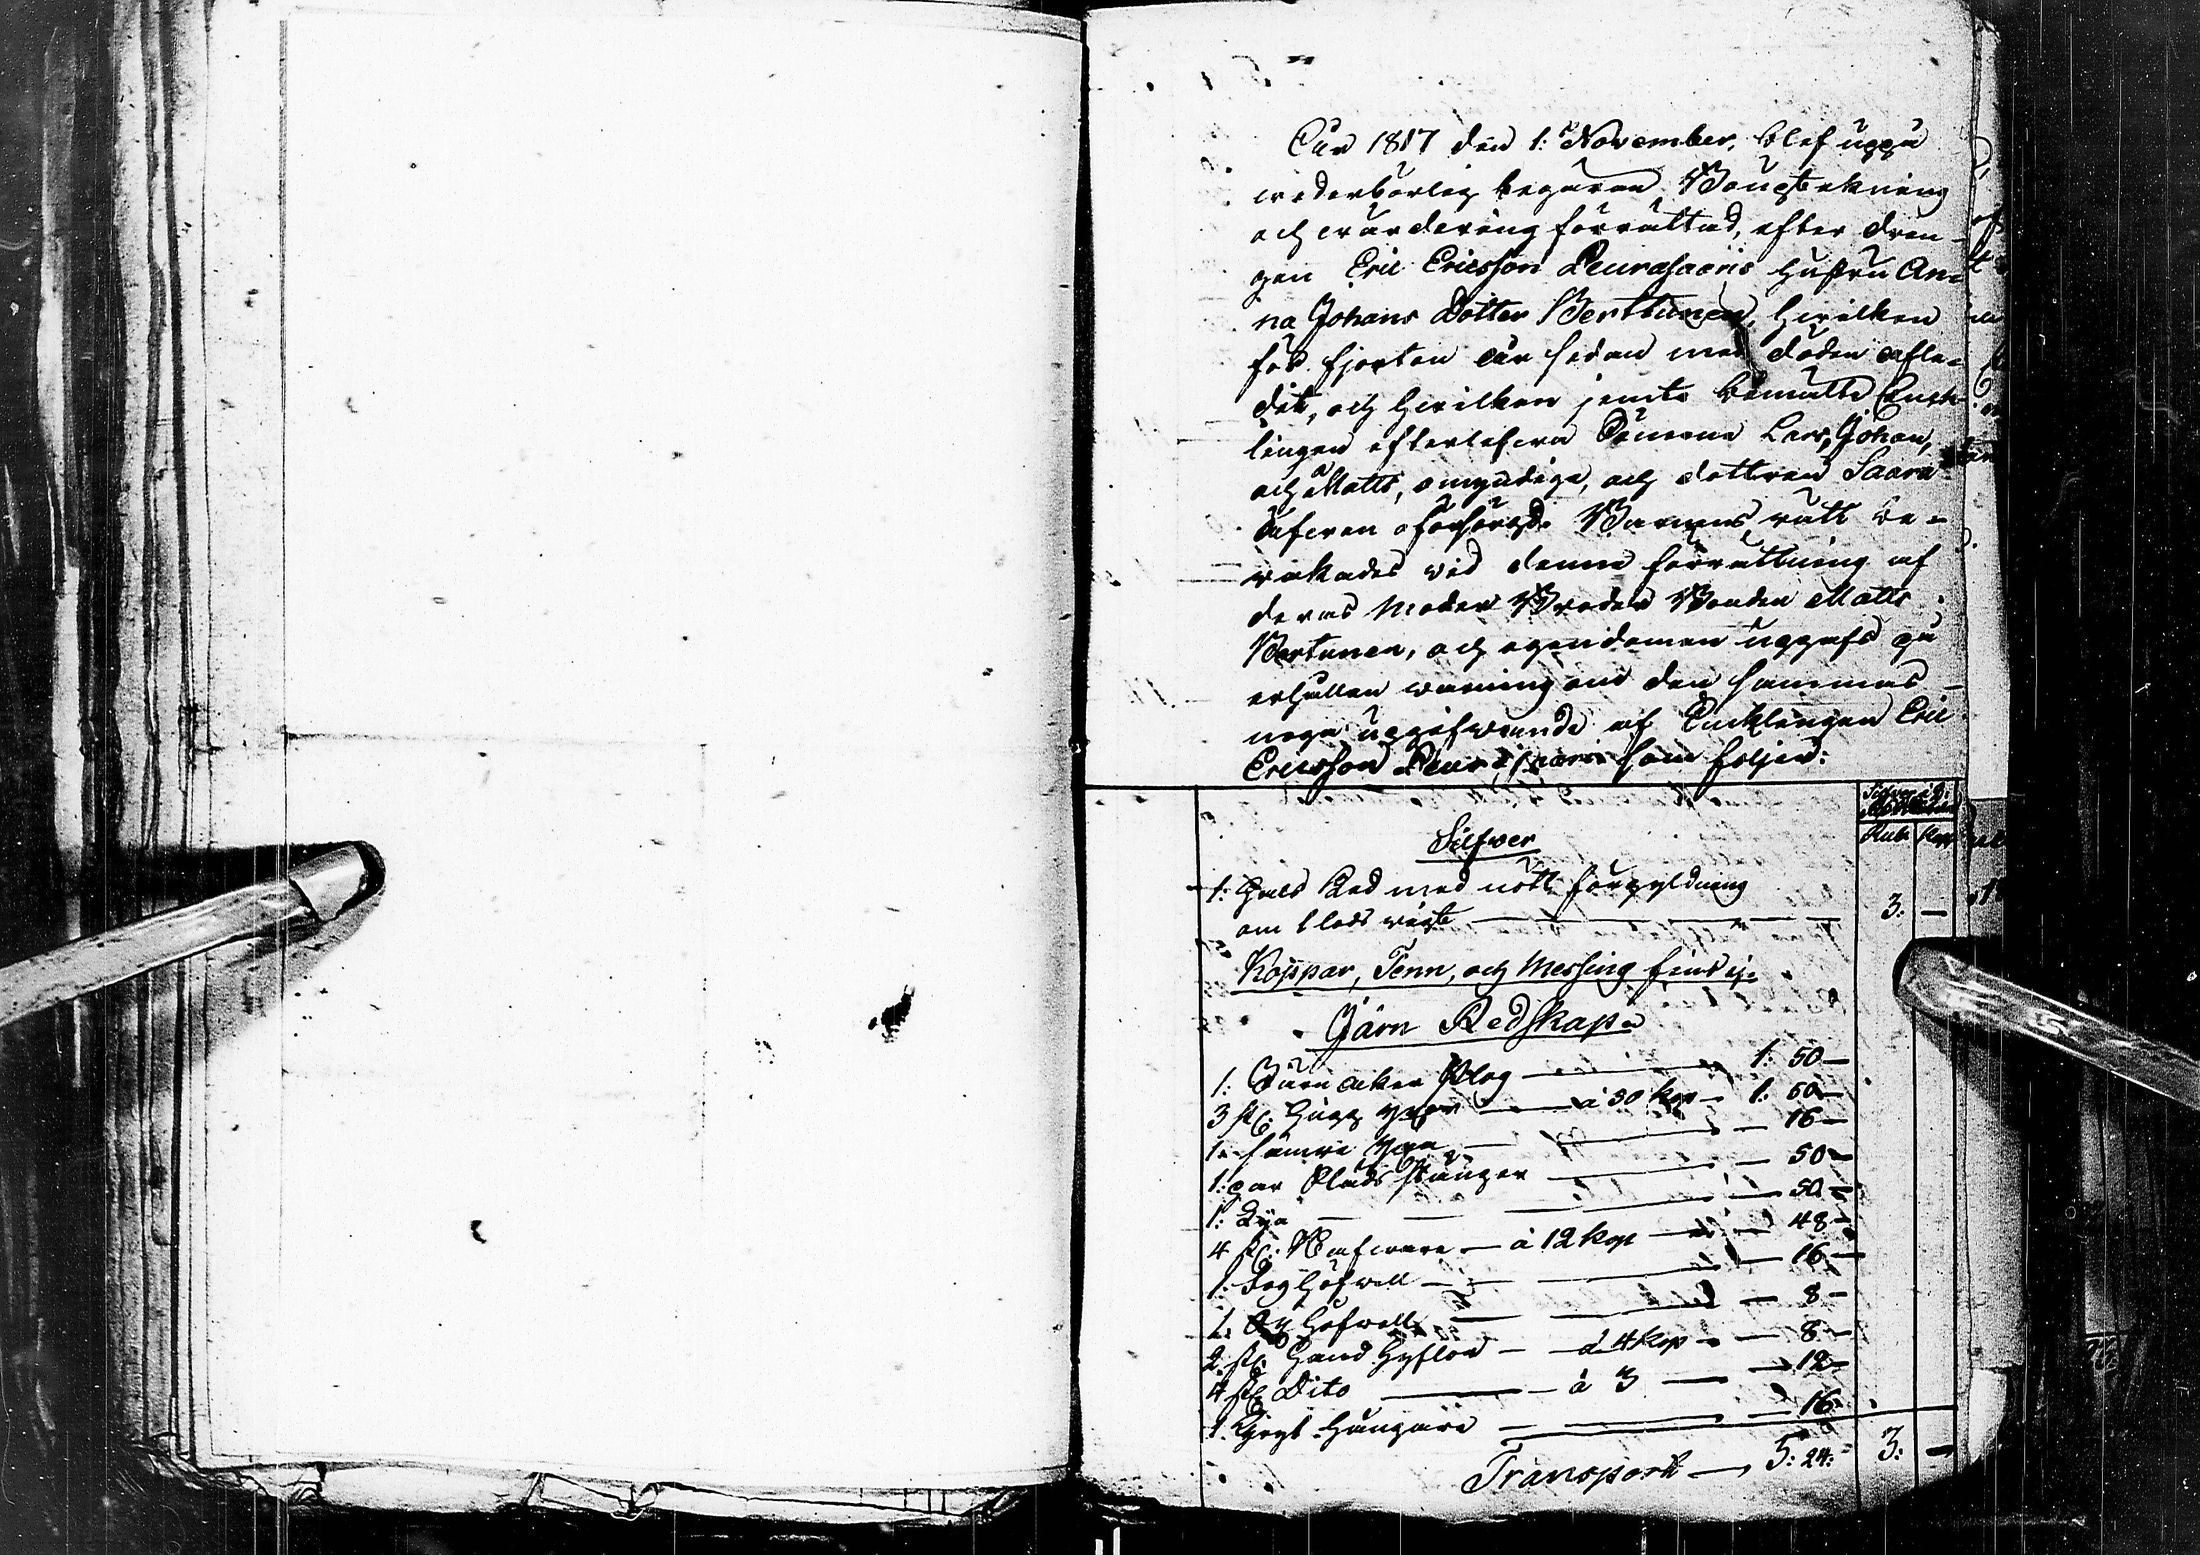 Åår 1817 den 1: November, blef uppå
wederbörlig begäran Boupptekning
och wärdering förrättad, efter dren-
gen Eric Ericsson Peurasaaris hustru An-
na Johans Dotter Berttunen, hwilken
för fjorton åår sedan med döden afle-
dit, och hwilken jemte bemälte Enck-
lingen efterlefwa Sönerne Lars, Johan,
och Matts, omyndige, och dottren Saara
äfwen oförsörgd. Barnens rätt be-
wakades vid denna förrättning af
deras Moder Broder Bonden Matts
Bertunen, och egendomen uppgafs på
erhållen warning om den sammas
noga uppgifwande af Encklingen Eric
Ericsson Peurasaari som följer:
Silfwer
Rub Kop
1: Hals Ked med nött förgyldning
om 1 lods wigt — 3: —
Koppar, Tenn, och Messing fins ej.
Järn Redskap
1: Järn åker Plog — 1: 50 —
3 st: Hugg yxor — à 50 kop — 1: 50 —
1: sämre yxa — 16 —
1: par Slåds stänger — 50 —
1: Lya — 50 —
4 st: Nafware — à 12 kop — 48 —
1: Log Höfwell — 16 —
1: Höfwell — 8 —
2 st: Hand Hyflor — à 4 kop — 8 —
4 st: Dito — à 3 — 12 —
1: Hängare — 16
Transport — 5: 24: 3: —